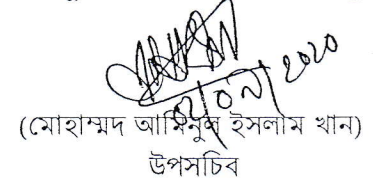 ০২/০৯/২০২০
(মোহাম্মদ আমিনুল ইসলাম খান)
উপসচিব